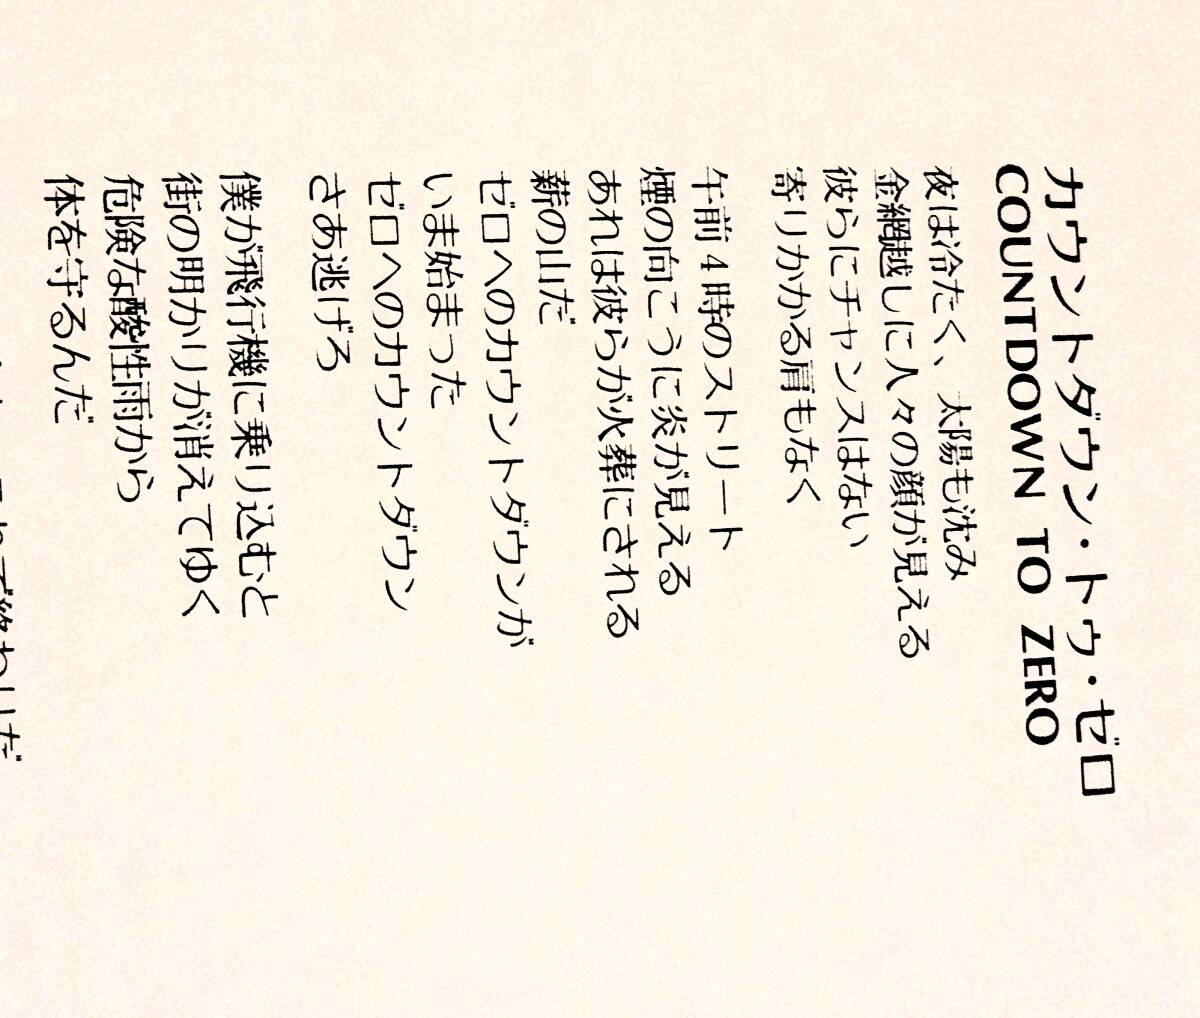 カウントダウン・トゥ・ゼロ
COUNTDOWN TO ZERO
夜は冷たく、太陽も沈み
金網越しに人々の顔が見える
彼らにチャンスはない
寄りかかる肩もなく
午前4時のストリート
煙の向こうに炎が見える
あれは彼らが火葬にされる
薪の山だ
ゼロへのカウントダウンが
いま始まった
ゼロへのカウントダウン
さあ逃げろ
僕が飛行機に乗り込むと
街の明かりが消えてゆく
危険な酸性雨から
体を守るんだ